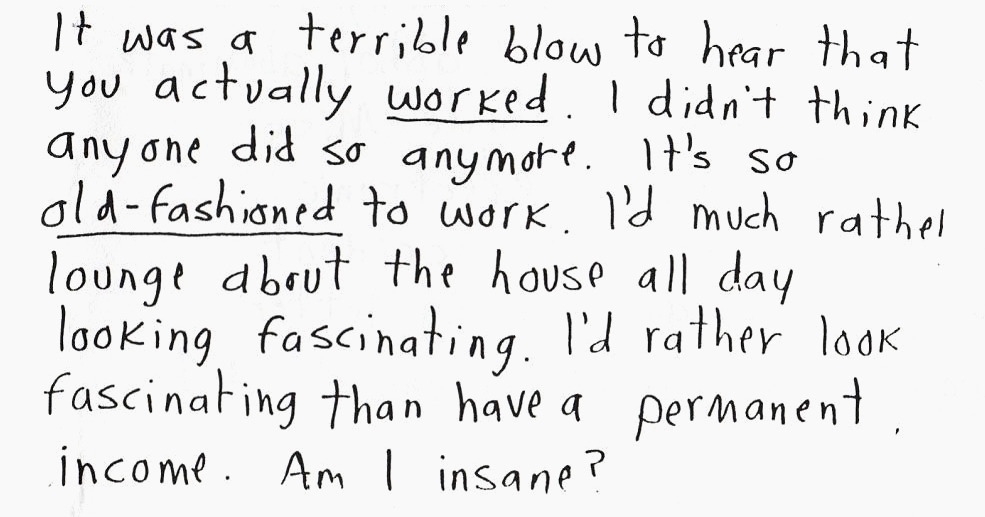 It was a terrible blow to hear that
you actually worked. I didn't think
anyone did so anymore. It's so
old-fashioned to work. I'd much rather
lounge about the house all day
looking fascinating. I'd rather look
fascinating than have a permanent
income. Am I insane?